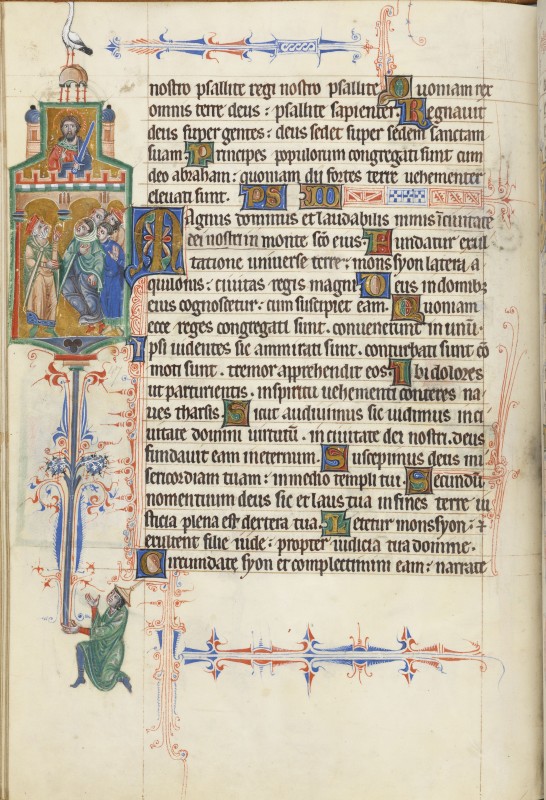 nostro psallite regi nostro psallite Quoniam rex
omnis terre deus : psallite sapienter Regnauit
deus super gentes : deus sedet super sedem sanctam
suam Principes populorum congregati sunt cum
deo abraham : quoniam dii fortes terre uehementer
eleuati sunt . PS M
Magnus dominus et laudabilis nimis : i ciuitate
dei nostri in monte sc̄o eius . Fundatur exul
tatione uniuerse terre : mons syon latera a
quilonis : ciuitas regis magni Deus in domibꝫ
eius cognoscetur : cum suscipiet eam . Quoniam
ecce reges congregati sunt . conuenerunt in unū .
Ipsi uidentes sic ammirati sunt . conturbati sunt cō
moti sunt . tremor apprehendit eos Ibi dolores
ut parturientis . in spiritu uehementi conteres na
ues tharsis . Sicut audiuimus sic uidimus in ci
uitate domini uirtutū . in ciuitate dei nostri . deus
fundauit eam ineternum . Suscepimus deus mi
sericordiam tuam : in medio templi tui . Secundū
nomen tuum deus sic et laus tua in fines terre iu
sticia plena est dextera tua . Letetur mons syon : ⁊
exultent filie iude : propter iudicia tua domine .
Circundate syon et complectimini eam : narrate